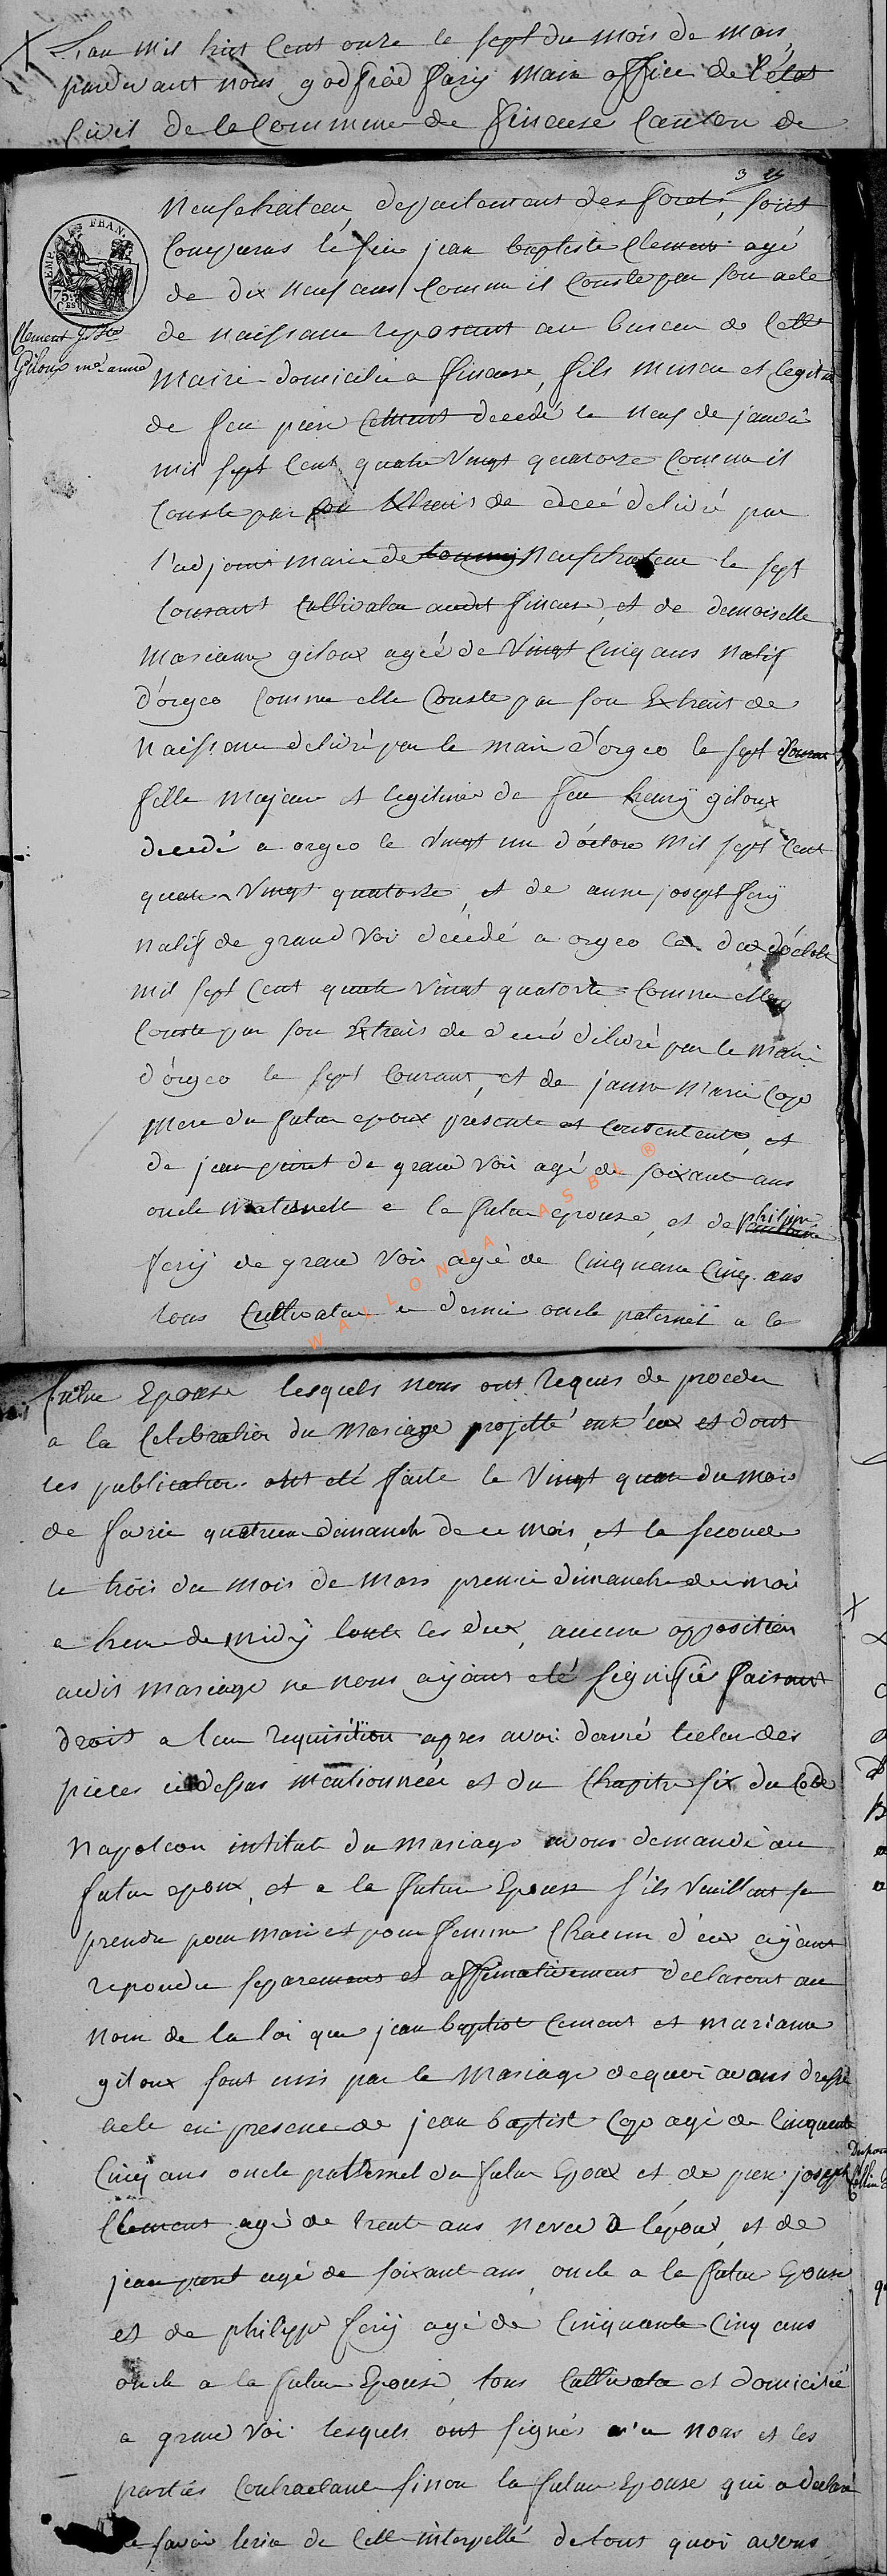 L'an mil huit Cent onze le sept du mois de mars
pardevant nous godfroid fery maire officier de l'état
Civil de la Commune de fineuse Canton de
3
Neufchateau, departement des forets, sont
Comparus le sieur jean baptiste Clement agé
de dix neuf ans Comme il Conste par son acte
de naissance reposent au bureau de Cette
EMP FRAN.
75
Clement J Bte
Giloux me anne
Mairie domicilié a fineuse, fils mineur et legitime
de feu pierre Clement decedé le neuf de janvier
mil sept Cent quatre vingt quatorze Comme il
Conste par son Extrait de decé délivré par
l'adjoint maire de Neufchateau le sept
Courant Cultivateur audit fineuse, et de demoiselle
marianne giloux agée de vingt Cinq ans natif
d'orgeo Comme elle Conste par son Extrait de
Naissance delivré par le maire d'orgeo le sept Courant
fille majeure et legitime de feu henry giloux
decedé a orgeo le vingt un d'octore mil sept Cent
quatre vingt quatorze, et de anne joseph fery
natif de grand Voir décédé a orgeo le dix d'octobre
mil sept Cent quatre vingt quatorze Comme elle
Conste par son Extrais de decé délivré par le maire
d'orgeo le sept Courant, et de janne Marie Cop
mere du futur epoux presente et Consentente, et
de jean piret de grand Voir agé de soixante ans
oncle maternelle a la future epouse, et de philippe
fery de grand Voir agé de Cinquante Cinq ans
tous Cultivateur e dernier oncle paternel a la
WALLONIA ASBL ®
future Epouse lesquels nous ont requis de proceder
a la Celebration du Mariage projetté entr'eux et dont
les publication ont eté faite le vingt quatre du mois
de fevrier quatrieme dimanche de ce mois, et la seconde
le trois du mois de Mars premier dimanche du mois
a heure de midÿ toute les deux, aucune opposition
audit mariage ne nous ayant eté signifié faisant
droit a leur requisition apres avoir donné lecture des
pieces ci dessus mentionnéés et du Chapitre six du Code
Napoleon intitulé du mariage avons demandé au
futur epoux, et a la future Epouse s'ils veuillent se
prendre pour mari et pour femme Chacun d'eux ayant
repondu separement et affirmativement declarons au
nom de la loi que jean baptiste Clement et marianne
giloux sont unis par le Mariage de quoi avons dressé
acte en presence de jean baptist Cop agé de Cinquante
Cinq ans oncle patternel du futur Epoux et de pierre joseph
Clement agé de trente ans nerveu a l'époux, et de
jean piret agé de soixante ans, oncle a la future Epouse
et de philippe fery agé de Cinquante Cinq ans
oncle a la future Epouse, tous Cultivateur et domicilié
a grand Voir lesquels ont signés avec nous et les
parties Contractante sinon la future Epouse qui a declaré
ne savoir écrire de Celle interpellé de tout quoi avons